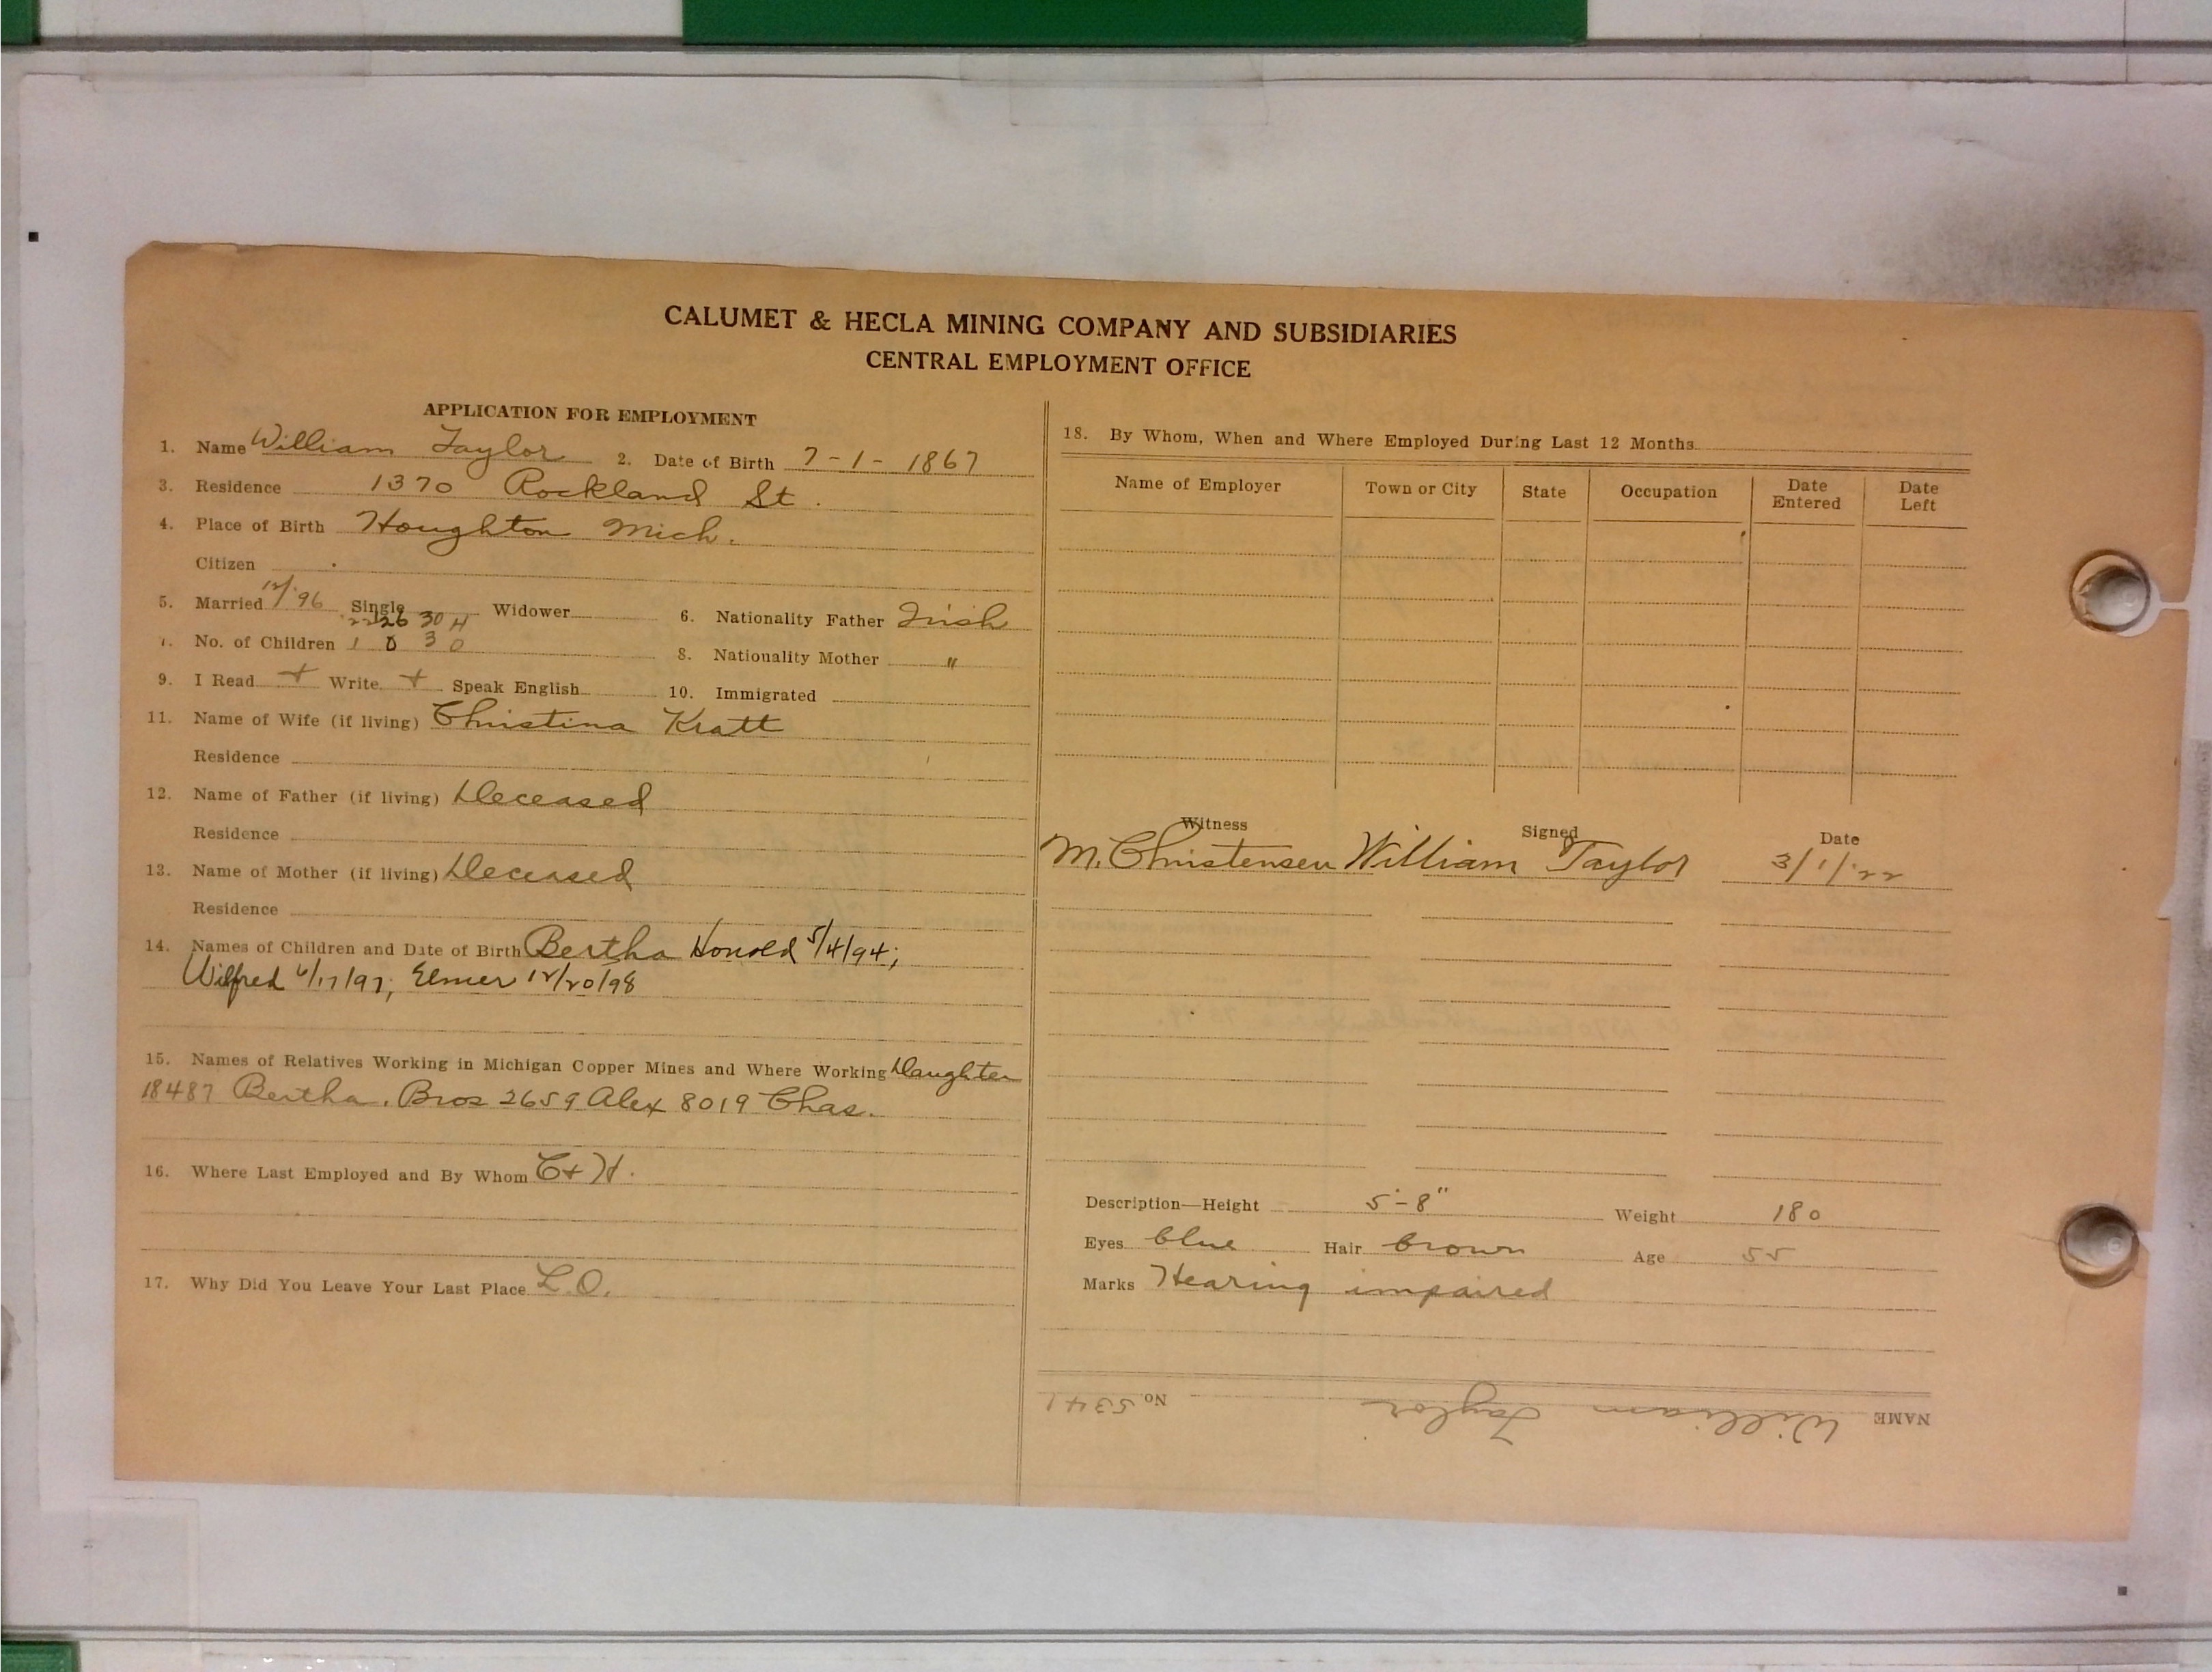 CALUMET & HECLA MINING COMPANY AND SUBSIDIARIES
CENTRAL EMPLOYMENT OFFICE
APPLICATION FOR EMPLOYMENT
1. Name William Taylor 2. Date of Birth 7-1-1867
3. Residence 1370 Rockland St.
4. Place of Birth Houghton Mich.
Citizen
5. Married 12/'96 Single Widower 6. Nationality Father Irish
'22 26 30 H
7. No. of Children 1 0 3 0 8. Nationality Mother "
9. I Read + Write + Speak English 10. Immigrated
11. Name of Wife (if living) Christina Kratt
Residence
12. Name of Father (if living) Deceased
Residence
13. Name of Mother (if living) Deceased
Residence
14. Names of Children and Date of Birth Bertha Honold 5/4/94;
Wilfred 6/17/97; Elmer 12/20/98
15. Names of Relatives Working in Michigan Copper Mines and Where Working Daughter
18487 Bertha. Bros 2659 Alex 8019 Chas.
16. Where Last Employed and By Whom C+H.
17. Why Did You Leave Your Last Place L.O.
18. By Whom, When and Where Employed During Last 12 Months
Name of Employer Town or City State Occupation Date Entered Date Left
Witness Signed Date
M. Christensen William Taylor 3/1/'22
Description—Height 5'-8" Weight 180
Eyes blue Hair brown Age 55
Marks Hearing impaired
NAME William Taylor No. 5341